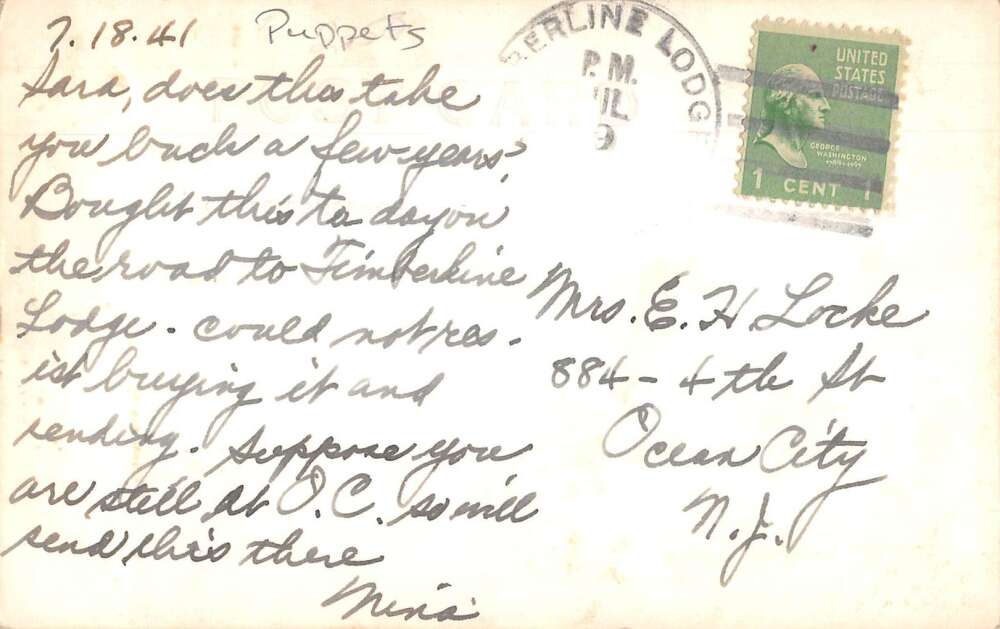 7.18.41
Puppets
Sara, does this take
you back a few years?
Bought this to day on
the road to Timberline
Lodge. could not res-
ist buying it and
sending. Suppose you
are still at O.C. so will
send this there
Mina
BERLINE LODGE
P.M.
JUL
9
UNITED
STATES
POSTAGE
GEORGE
WASHINGTON
1789-1797
1 CENT 1
Mrs. E. H. Locke
884 - 4th St
Ocean City
N.J.